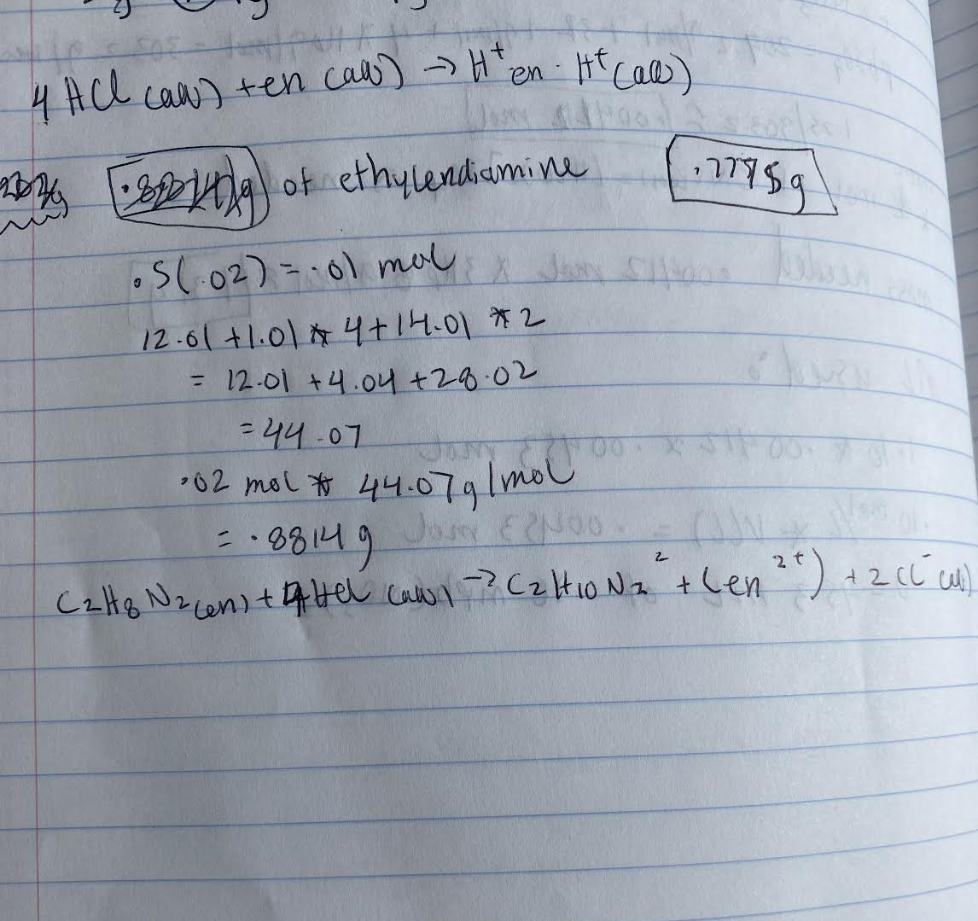 4 HCl (aq) + en (aq) → H⁺ en · H⁺ (aq)
of ethylendiamine .7775g
.5(.02) = .01 mol
12.01 + 1.01 * 4 + 14.01 * 2
= 12.01 + 4.04 + 28.02
= 44.07
.02 mol * 44.07 g/mol
= .8814 g
C2H8N2 (en) + HCl (aq) → C2H10N2² + (en²⁺) + 2Cl⁻ (aq)